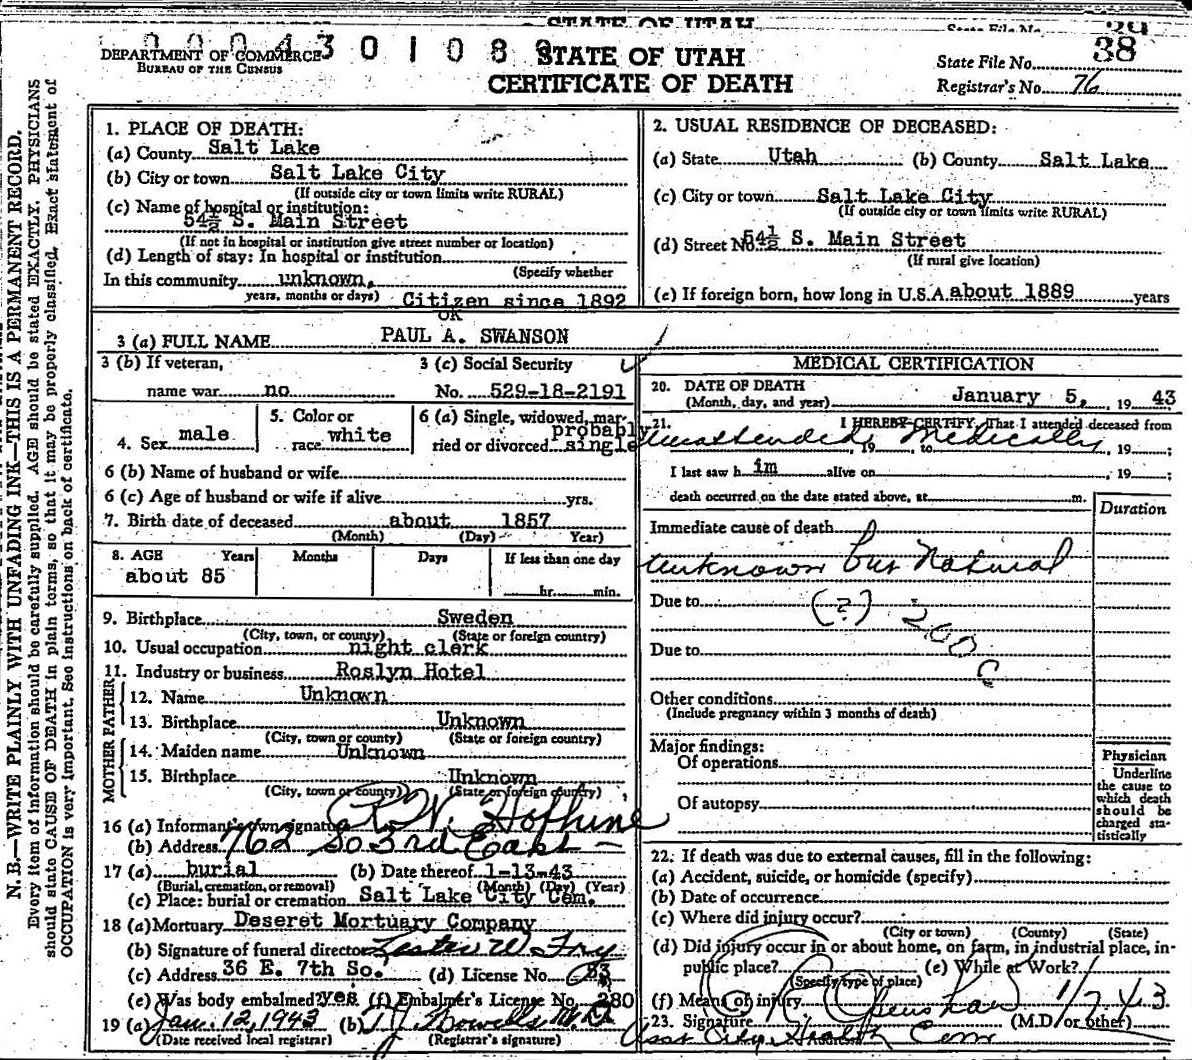 STATE OF UTAH
29
State File No.
0 0 0 4 3 0 1 0 8
DEPARTMENT OF COMMERCE
BUREAU OF THE CENSUS
STATE OF UTAH
CERTIFICATE OF DEATH
State File No. 38
Registrar's No. 76
N. B.—WRITE PLAINLY WITH UNFADING INK—THIS IS A PERMANENT RECORD.
Every item of information should be carefully supplied. AGE should be stated EXACTLY. PHYSICIANS
should state CAUSE OF DEATH in plain terms, so that it may be properly classified. Exact statement of
OCCUPATION is very important. See instructions on back of certificate.
1. PLACE OF DEATH:
(a) County Salt Lake
(b) City or town Salt Lake City
(If outside city or town limits write RURAL)
(c) Name of hospital or institution:
54½ S. Main Street
(If not in hospital or institution give street number or location)
(d) Length of stay: In hospital or institution
(Specify whether
In this community unknown,
years, months or days) Citizen since 1892
2. USUAL RESIDENCE OF DECEASED:
(a) State Utah (b) County Salt Lake
(c) City or town Salt Lake City
(If outside city or town limits write RURAL)
(d) Street No. 54½ S. Main Street
(If rural give location)
(e) If foreign born, how long in U.S.A. about 1889 years
OK
3 (a) FULL NAME PAUL A. SWANSON
3 (b) If veteran,
name war no
3 (c) Social Security
No. 529-18-2191
4. Sex male
5. Color or
race white
6 (a) Single, widowed, mar-
ried or divorced probably single
6 (b) Name of husband or wife
6 (c) Age of husband or wife if alive yrs.
7. Birth date of deceased about 1857
(Month) (Day) Year)
8. AGE Years Months Days If less than one day
about 85
hr. min.
9. Birthplace Sweden
(City, town, or county) (State or foreign country)
10. Usual occupation night clerk
11. Industry or business Roslyn Hotel
FATHER
12. Name Unknown
13. Birthplace Unknown
(City, town or county) (State or foreign country)
MOTHER
14. Maiden name Unknown
15. Birthplace Unknown
(City, town or county) (State or foreign country)
16 (a) Informant's own signature R. W. Hofhine
(b) Address 762 So 3rd East
17 (a) burial (b) Date thereof 1-13-43
(Burial, cremation, or removal) (Month) (Day) (Year)
(c) Place: burial or cremation Salt Lake City Cem.
18 (a) Mortuary Deseret Mortuary Company
(b) Signature of funeral director Lester W Fry
(c) Address 36 E. 7th So. (d) License No. 83
(e) Was body embalmed? yes (f) Embalmer's License No. 280
19 (a) Jan. 12, 1943 (b)
(Date received local registrar) (Registrar's signature)
MEDICAL CERTIFICATION
20. DATE OF DEATH
(Month, day, and year) January 5, 19 43
21. I HEREBY CERTIFY, That I attended deceased from
Unattended Medically, 19 , to , 19 ;
I last saw h im alive on , 19 ;
death occurred on the date stated above, at m.
Duration
Immediate cause of death
Unknown but Natural
Due to (?) 200
Due to c
Other conditions
(Include pregnancy within 3 months of death)
Major findings:
Of operations
Of autopsy
Physician
Underline
the cause to
which death
should be
charged sta-
tistically
22. If death was due to external causes, fill in the following:
(a) Accident, suicide, or homicide (specify)
(b) Date of occurrence
(c) Where did injury occur?
(City or town) (County) (State)
(d) Did injury occur in or about home, on farm, in industrial place, in-
public place? (e) While at Work?
(Specify type of place)
(f) Means of injury
23. Signature C R Openshaw 1/7 43 (M.D. or other)
Asst City Health Com
Address